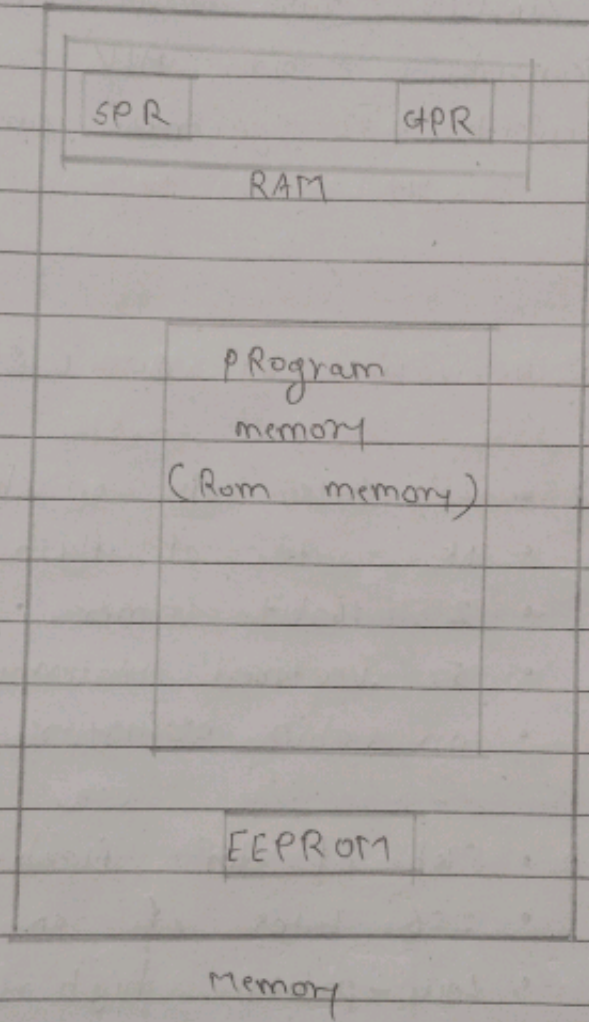 SPR GPR
RAM
PRogram
memory
(Rom memory)
EEPROM
Memory